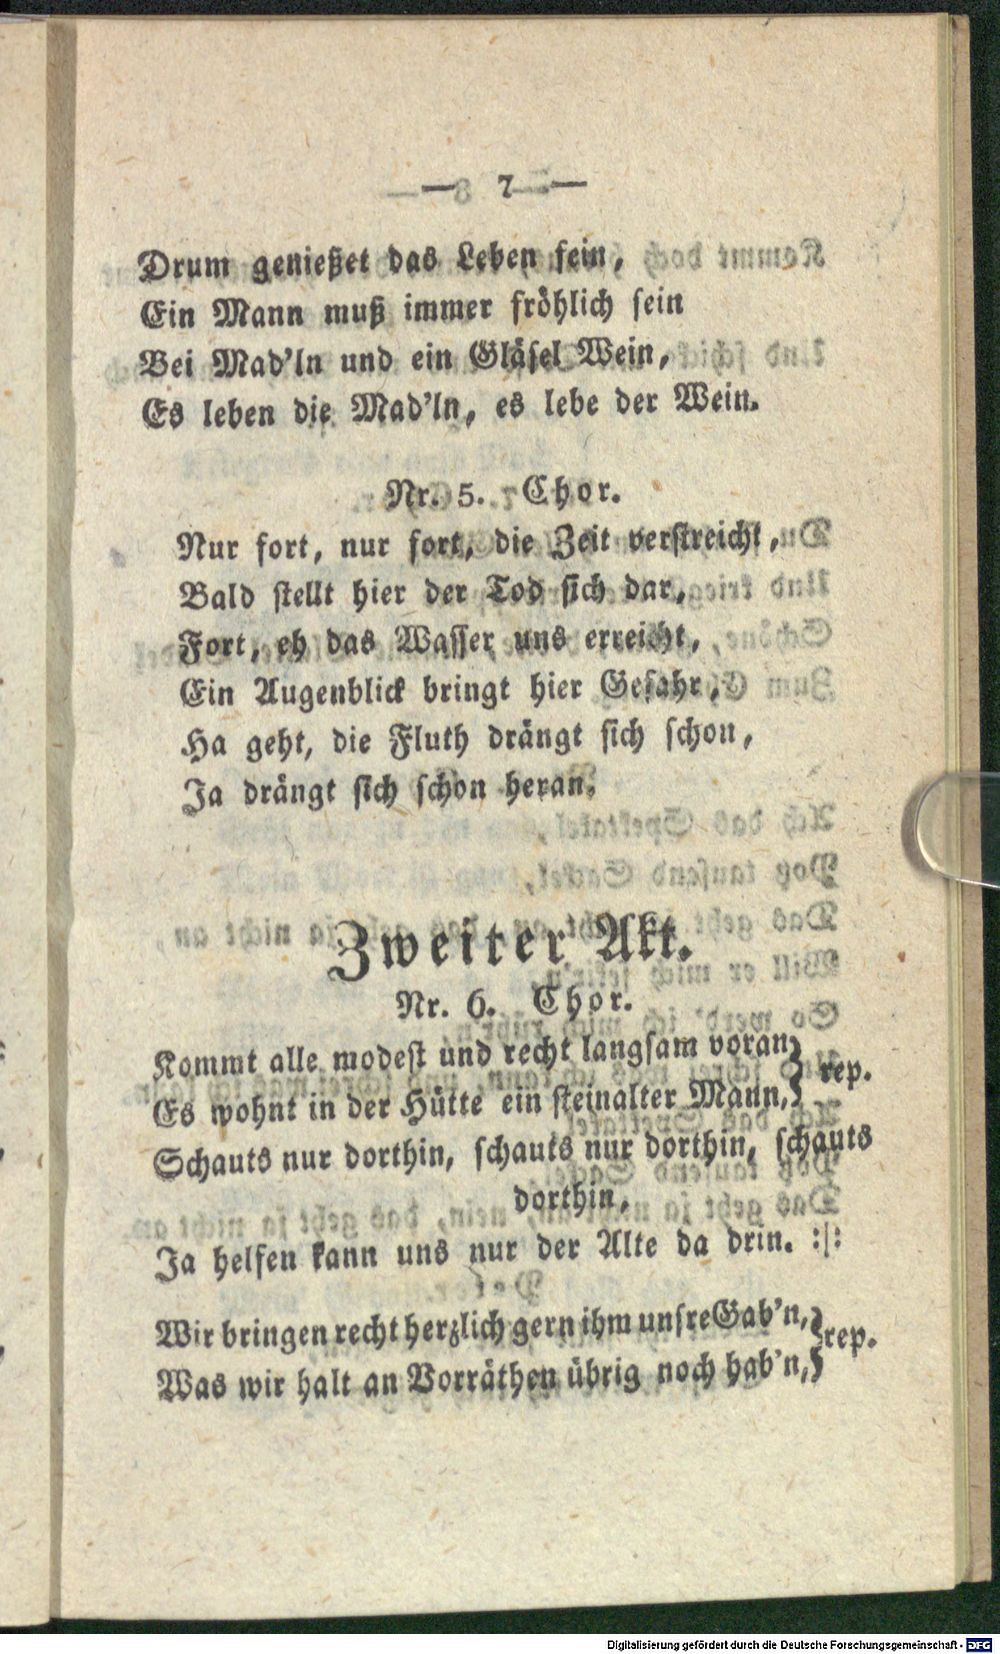 — 7 —
Drum genießet das Leben fein,
Ein Mann muß immer fröhlich sein
Bei Mad'ln und ein Gläsel Wein,
Es leben die Mad'ln, es lebe der Wein.
Nr. 5. Chor.
Nur fort, nur fort, die Zeit verstreicht,
Bald stellt hier der Tod sich dar,
Fort, eh das Wasser uns erreicht,
Ein Augenblick bringt hier Gefahr,
Ha geht, die Fluth drängt sich schon,
Ja drängt sich schon heran.
Zweiter Akt.
Nr. 6. Chor.
Kommt alle modest und recht langsam voran } rep.
Es wohnt in der Hütte ein steinalter Mann,
Schauts nur dorthin, schauts nur dorthin, schauts
dorthin,
Ja helfen kann uns nur der Alte da drin. :|:
Wir bringen recht herzlich gern ihm unsre Gab'n, } rep.
Was wir halt an Vorräthen übrig noch hab'n,
Digitalisierung gefördert durch die Deutsche Forschungsgemeinschaft - DFG